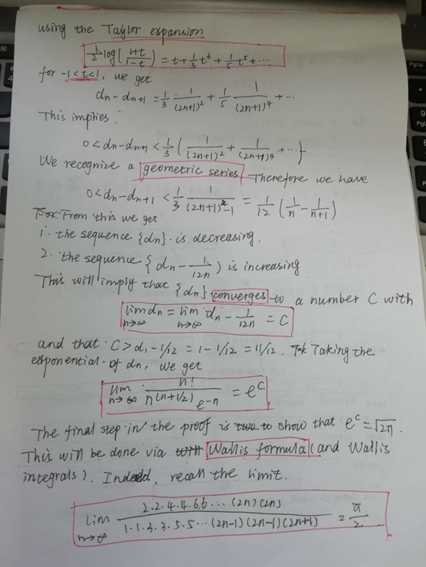 using the Taylor expansion
1/2 log(1+t/1-t) = t + 1/3 t³ + 1/5 t⁵ + ...
for -1<t<1, we get
dn - dn+1 = 1/3 1/(2n+1)² + 1/5 1/(2n+1)⁴ + ...
This implies.
0 < dn - dn+1 < 1/3 { 1/(2n+1)² + 1/(2n+1)⁴ + ... }
We recognize a geometric series. Therefore we have
0 < dn - dn+1 < 1/3 1/(2n+1)²-1 = 1/12 (1/n - 1/n+1)
From this we get
1. the sequence {dn} is decreasing.
2. the sequence {dn - 1/12n} is increasing
This will imply that {dn} converges to a number C with
lim n→∞ dn = lim n→∞ dn - 1/12n = C
and that C > d1 - 1/12 = 1 - 1/12 = 11/12. Taking the
exponential of dn, we get
lim n→∞ n!/n(n+1/2) e-n = eᶜ
The final step in the proof is to show that eᶜ = √2π.
This will be done via Wallis formula (and Wallis
integrals). Indeed, recall the limit.
lim n→∞ 2.2.4.4.6.6...(2n)(2n)/1.1.3.3.5.5...(2n-1)(2n-1)(2n+1) = π/2